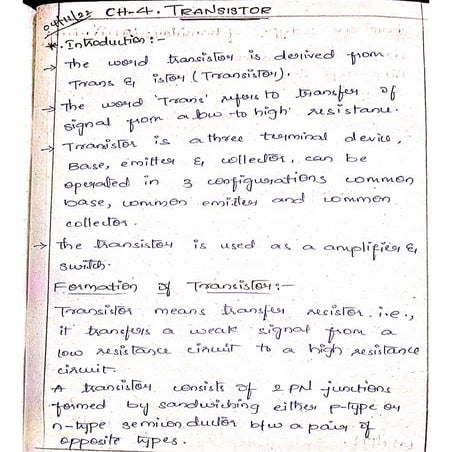 04/11/22 CH-4. TRANSISTOR
*. Introduction :-
→ The word transistor is derived from
Trans & istor (Transistor).
→ The word 'Trans' refers to transfer of
signal from a low to high resistance.
→ Transistor is a three terminal device,
Base, emitter & collector, can be
operated in 3 configurations common
base, common emitter and common
collector.
→ The transistor is used as a amplifier &
switch.
Formation of Transistor:-
Transistor means transfer resistor. i.e.,
it transfers a weak signal from a
low resistance circuit to a high resistance
circuit.
A transistor consists of 2 PN junctions
formed by sandwiching either p-type or
n-type semiconductor b/w a pair of
opposite types.